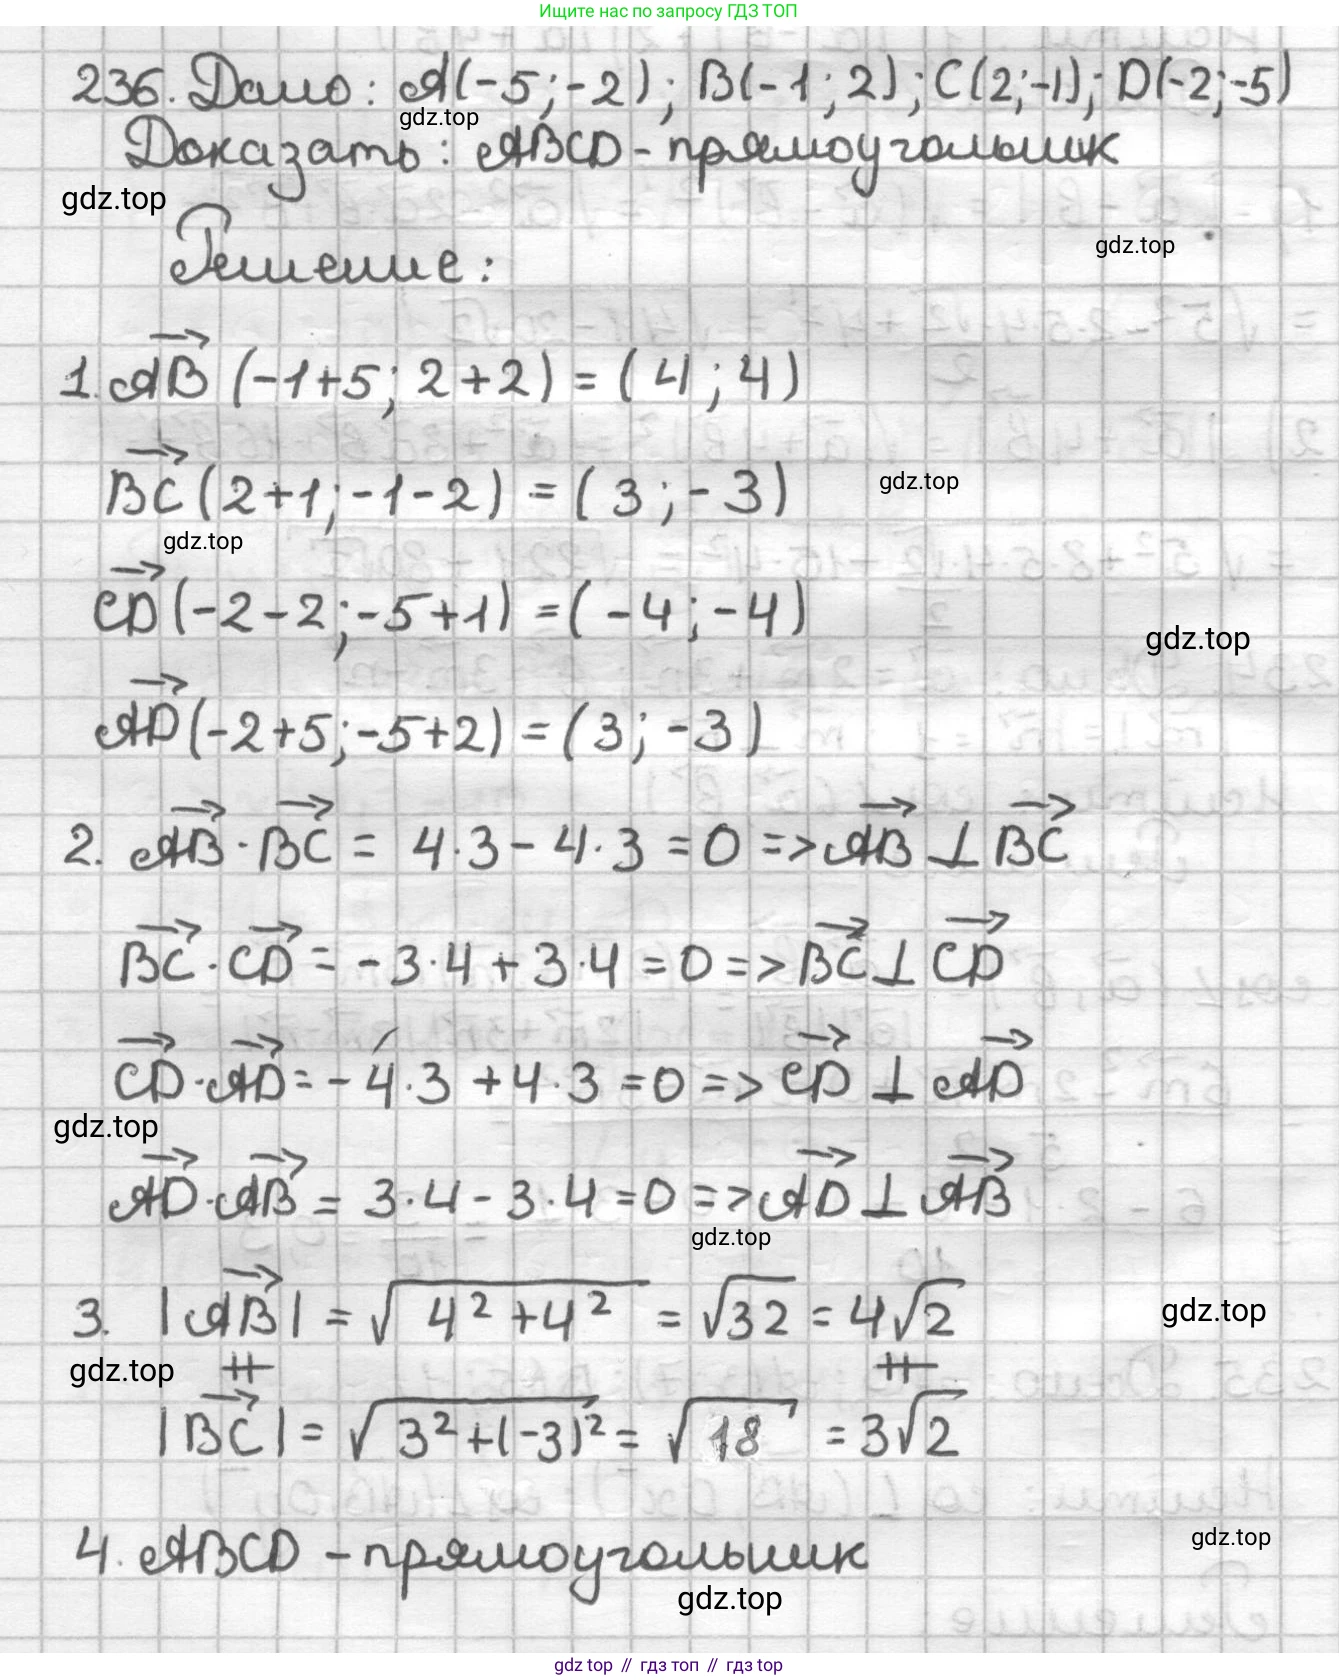 Ищите нас по запросу ГДЗ ТОП
236. Дано: A(-5;-2); B(-1;2); C(2;-1); D(-2;-5)
gdz.top
Доказать: ABCD - прямоугольник
gdz.top
gdz.top
Решение:
1. AB (-1+5; 2+2) = (4; 4)
BC (2+1; -1-2) = (3; -3)
gdz.top
gdz.top
CD (-2-2; -5+1) = (-4; -4)
gdz.top
AD (-2+5; -5+2) = (3; -3)
2. AB · BC = 4·3 - 4·3 = 0 => AB ⊥ BC
BC · CD = -3·4 + 3·4 = 0 => BC ⊥ CD
CD · AD = -4·3 + 4·3 = 0 => CD ⊥ AD
gdz.top
AD · AB = 3·4 - 3·4 = 0 => AD ⊥ AB
gdz.top
3. |AB| = √4² + 4² = √32 = 4√2
gdz.top
gdz.top
|BC| = √3² + (-3)² = √18 = 3√2
gdz.top
4. ABCD - прямоугольник
gdz.top
gdz top // гдз топ // гдз top